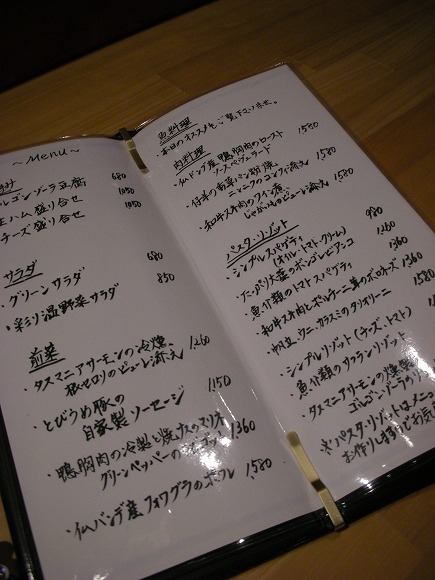 ~Menu~
ゴルゴンゾーラ豆腐 680
生ハム盛り合せ 1050
チーズ盛り合せ 1050
サラダ
・グリーンサラダ 680
・彩り温野菜サラダ 850
前菜
・タスマニアサーモンの冷燻、
根セロリのピューレ添え 1,260
・とびうめ豚の
自家製ソーセージ 1,150
・鴨胸肉の冷製と焼ナスのマリネ
グリーンペッパーの 1,360
・仏バンデ産フォワグラのポワレ 1,580
魚料理
・本日のオススメをご覧下さいませ。
肉料理
・仏バンデ産鴨胸肉のロースト
ソースペヴェラード 1,580
・仔羊の香草パン粉焼
ニンニクのコンフィ添え 1,580
・和牛スネ肉の赤ワイン煮
じゃがいものピューレ添え 1,580
パスタ・リゾット
・シンプルスパゲティ 980
(オイル・トマト・クリーム)
・アンポリ大葉のボンゴレビアンコ 1,260
・魚介類のトマトスパゲティ 1,360
・和牛スネ肉とポルチーニ茸のボロネーズ 1,360
・帆立、ウニ、カラスミのタリオリーニ 1,580
・シンプルリゾット(チーズ、トマト)
・魚介類のサフランリゾット
・タスマニアサーモンの燻製と
ゴルゴンゾーラの
※パスタ・リゾットはメニュー
お作りしますのでお気